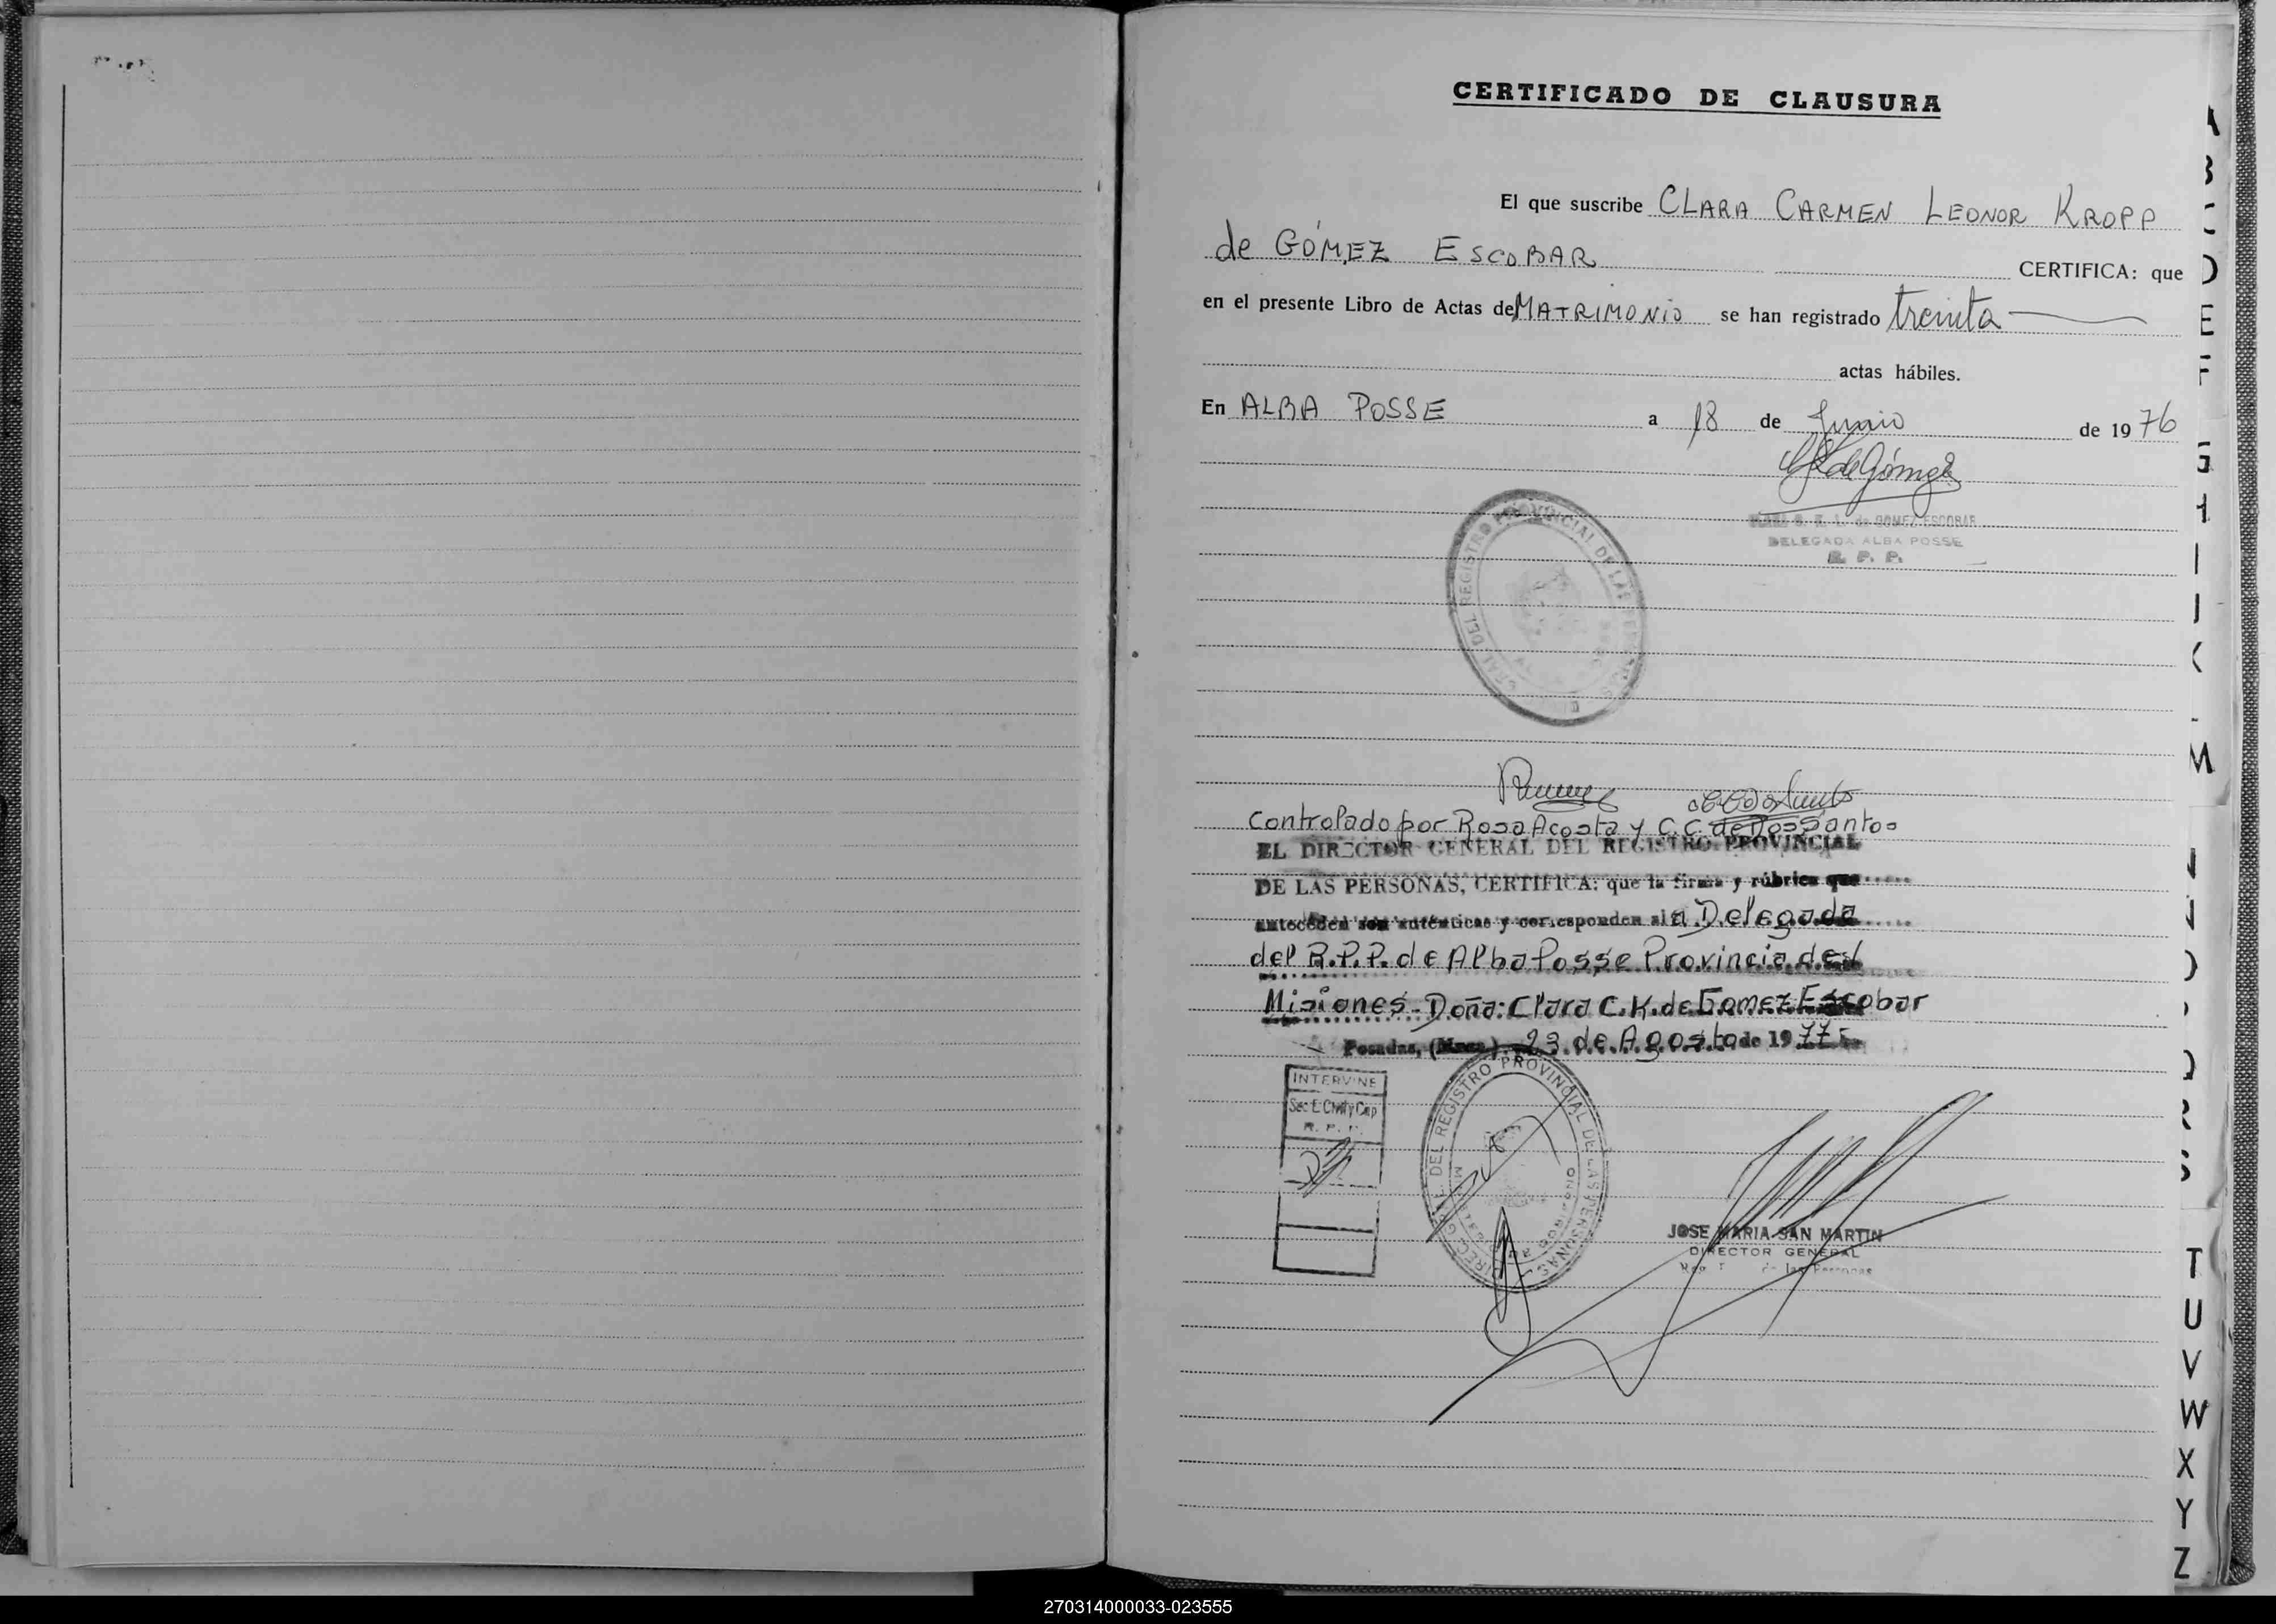 CERTIFICADO DE CLAUSURA
El que suscribe CLARA CARMEN LEONOR KROPP
de GÓMEZ ESCOBAR CERTIFICA: que
en el presente Libro de Actas de MATRIMONIO se han registrado treinta
actas hábiles.
En ALBA POSSE a 18 de Junio de 1976
de Gómez
de GOMEZ ESCOBAR
DELEGADA ALBA POSSE
R. P. P.
REGISTRO PROVINCIAL DE LAS
Controlado por Rosa Acosta y C.C. de Dos Santos
EL DIRECTOR GENERAL DEL REGISTRO PROVINCIAL
DE LAS PERSONAS, CERTIFICA: que la firma y rúbrica que
anteceden son auténticas y corresponden a la Delegada
del R.P.P. de Alba Posse Provincia de
Misiones - Doña: Clara C. K. de Gomez Escobar
Posadas, (Mnes.) 23 de Agosto de 1977
INTERVINE
Sec. E. Civil y Cap
R. P. P.
DIREC. GRAL. DEL REGISTRO PROVINCIAL DE LAS PERSONAS
JOSE MARIA SAN MARTIN
DIRECTOR GENERAL
de las Personas
A
B
C
D
E
F
G
H
I
J
K
M
N
O
P
Q
R
S
T
U
V
W
X
Y
Z
270314000033-023555